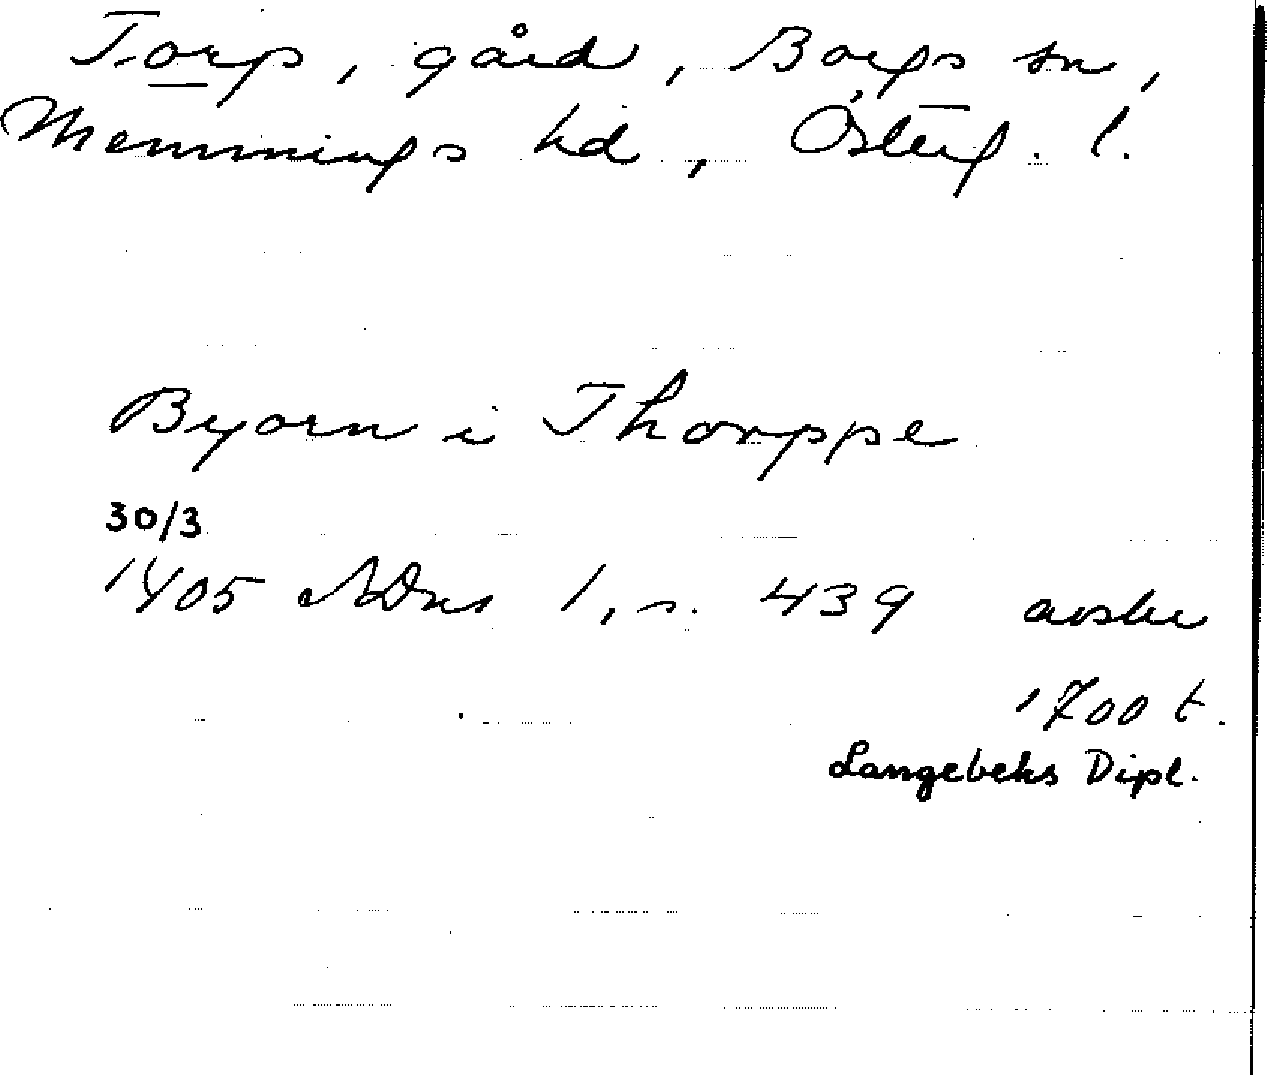 Torp, gård, Borgs sn,
Memmings hd, Österg. l.
Byorn i Thorppe
30/3
1405 SDns 1, s. 439 avskr
1700 t.
Langebeks Dipl.